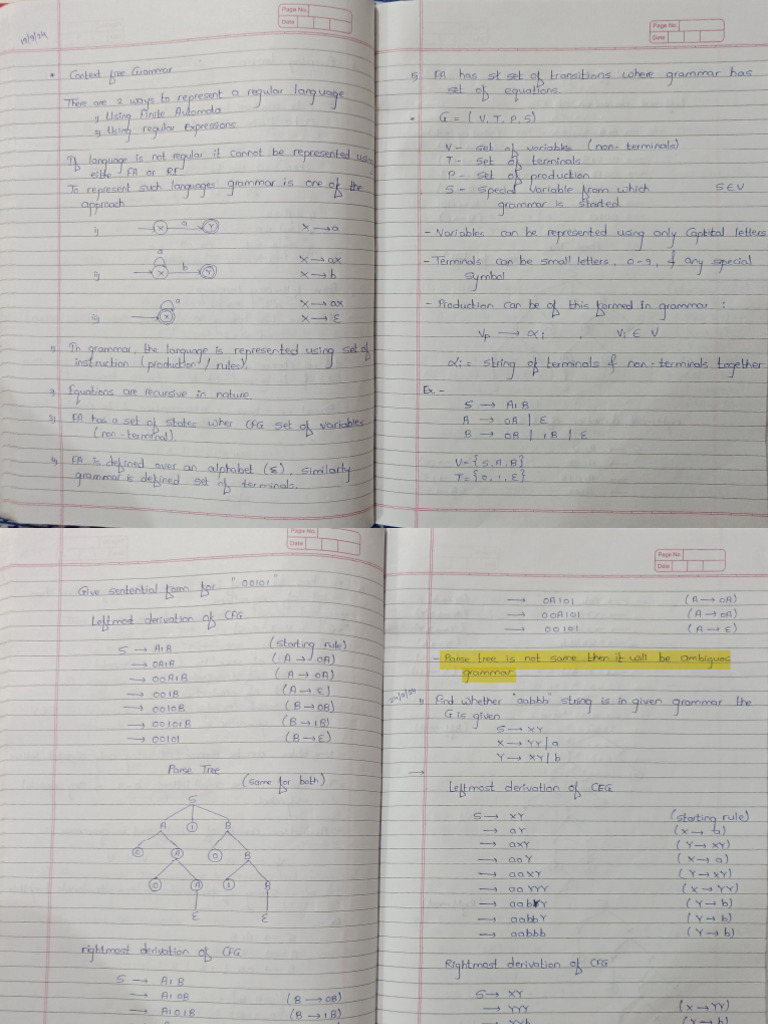 Page No.
Date
19/9/24
• Context free Grammar
There are 2 ways to represent a regular language
i) Using Finite Automata
ii) Using regular Expressions
If language is not regular it cannot be represented using
either FA or RE
To represent such languages grammar is one of the
approach
i) X a Y X → a
ii) a X b Y X → ax
X → b
iii) a X X → ax
X → ε
1) In grammar, the language is represented using set of
instruction (production / rules).
2) Equations are recursive in nature.
3) FA has a set of states wher CFG set of variables
(non-terminal).
4) FA is defined over an alphabet (Σ), similarly
grammar is defined set of terminals.
Page No.
Date
5) FA has set of transitions where grammar has
set of equations.
• G = (V, T, P, S)
V - set of variables (non-terminals)
T - set of terminals
P - set of production
S - Special variable from which S ∈ V
grammar is started
- Variables can be represented using only Captital letters
- Terminals can be small letters, 0-9, & any special
symbol
- Production can be of this formed in grammar :
Vp → αi , Vi ∈ V
αi = string of terminals & non-terminals together
Ex -
S → A1B
A → 0A | ε
B → 0B | 1B | ε
V = {S, A, B}
T = {0, 1, ε}
Page No.
Date
Give sentential form for "00101"
Leftmost derivation of CFG
S → A1B (starting rule)
→ 0A1B (A → 0A)
→ 00A1B (A → 0A)
→ 001B (A → ε)
→ 0010B (B → 0B)
→ 00101B (B → 1B)
→ 00101 (B → ε)
Parse Tree
(same for both)
S
A 1 B
0 A 0 B
0 A 1 B
ε ε
rightmost derivation of CFG
S → A1B
→ A10B (B → 0B)
→ A101B (B → 1B)
Page No.
Date
→ 0A101 (A → 0A)
→ 00A101 (A → 0A)
→ 00101 (A → ε)
- Parse tree is not same then it will be ambiguos
grammar
1) Find whether "aabbb" string is in given grammar the
G is given
S → XY
X → YY | a
Y → XY | b
→
Leftmost derivation of CFG
S → XY (starting rule)
→ aY (X → a)
→ aXY (Y → XY)
→ aaY (X → a)
→ aaXY (Y → XY)
→ aaYYY (X → YY)
→ aabYY (Y → b)
→ aabbY (Y → b)
→ aabbb (Y → b)
Rightmost derivation of CFG
S → XY
→ YYY (X → YY)
→ YYb (Y → b)